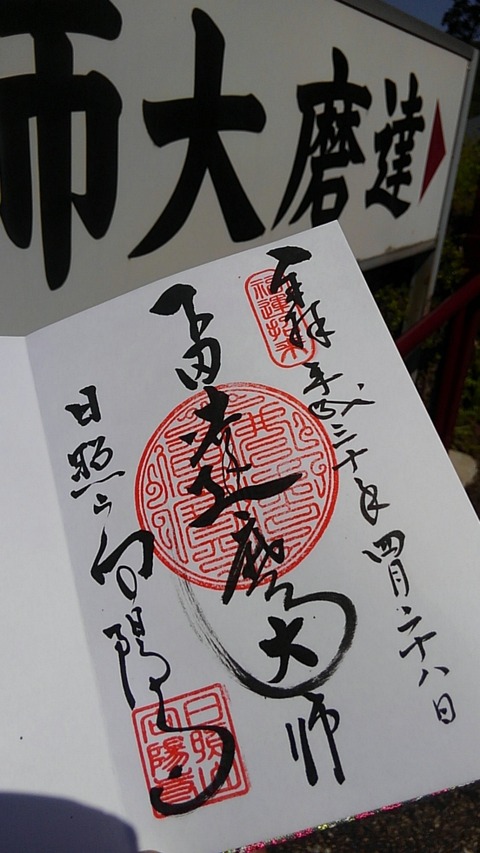 達磨大師
奉拝 平成三十年四月二十八日
福運招来
富田達磨大師
日照山向陽寺
日照山
向陽寺